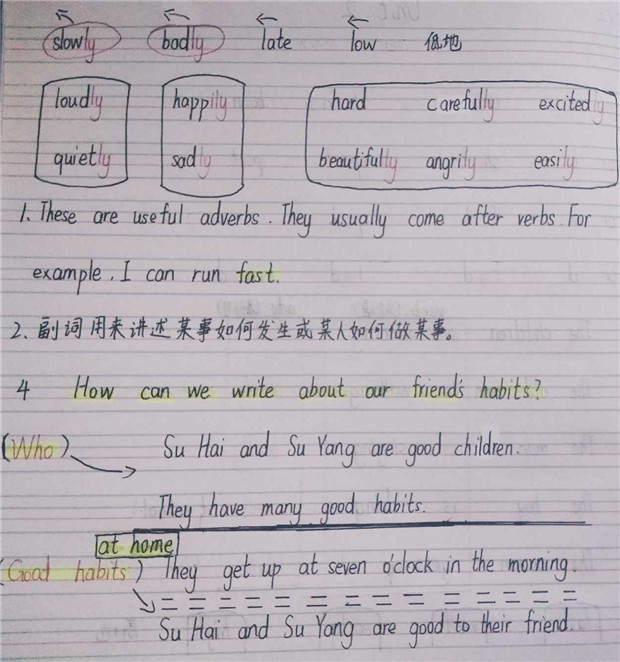 slowly badly late low 低地
loudly happily hard carefully excitedly
quietly sadly beautifully angrily easily
1. These are useful adverbs. They usually come after verbs For
example, I can run fast.
2、副词用来讲述某事如何发生或某人如何做某事。
4 How can we write about our friend's habits?
(Who) Su Hai and Su Yang are good children.
They have many good habits.
at home
(Good habits) They get up at seven o'clock in the morning.
Su Hai and Su Yang are good to their friend.